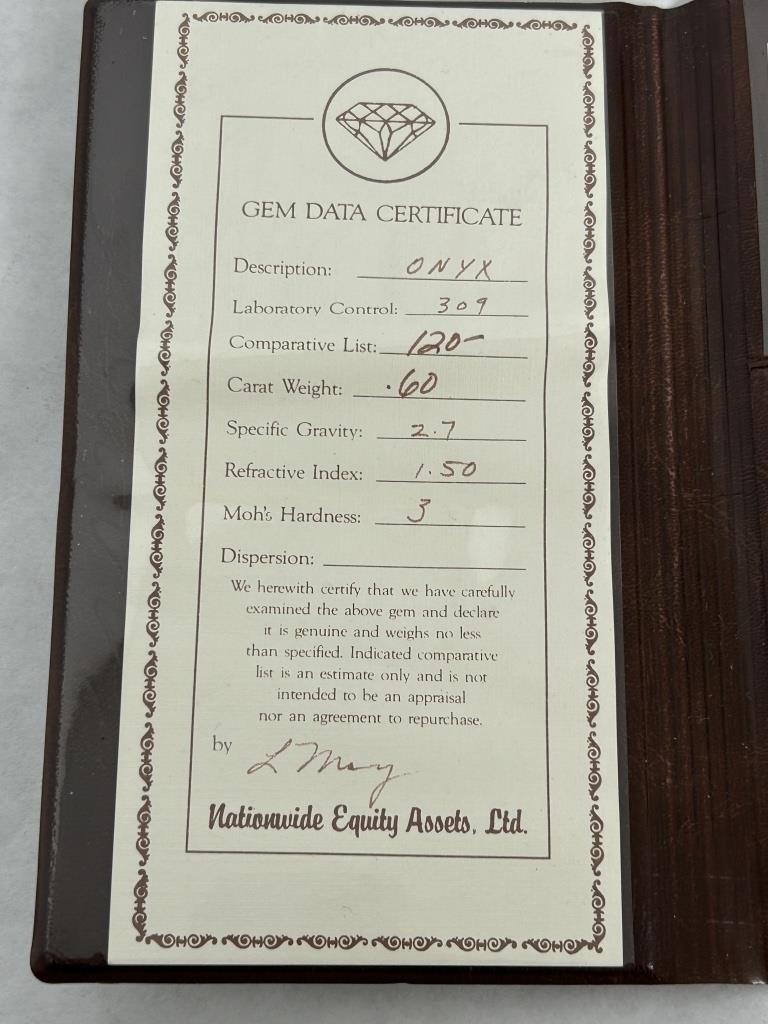 GEM DATA CERTIFICATE
Description: ONYX
Laboratory Control: 309
Comparative List: 120-
Carat Weight: .60
Specific Gravity: 2.7
Refractive Index: 1.50
Moh's Hardness: 3
Dispersion:
We herewith certify that we have carefully
examined the above gem and declare
it is genuine and weighs no less
than specified. Indicated comparative
list is an estimate only and is not
intended to be an appraisal
nor an agreement to repurchase.
by L May
Nationwide Equity Assets, Ltd.